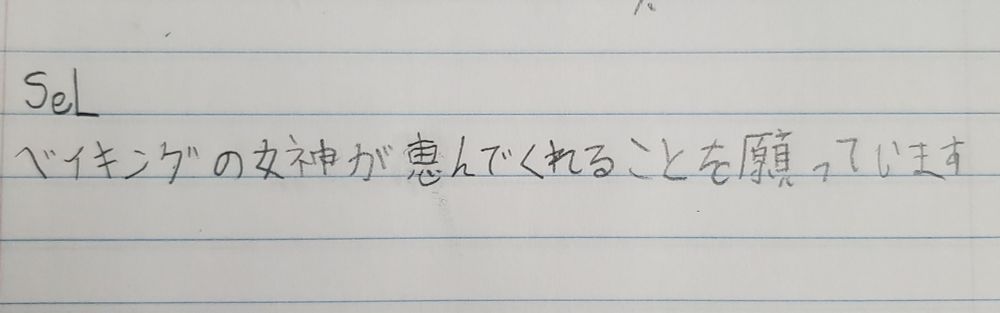 SeL
ベイキングの女神が恵んでくれることを願っています